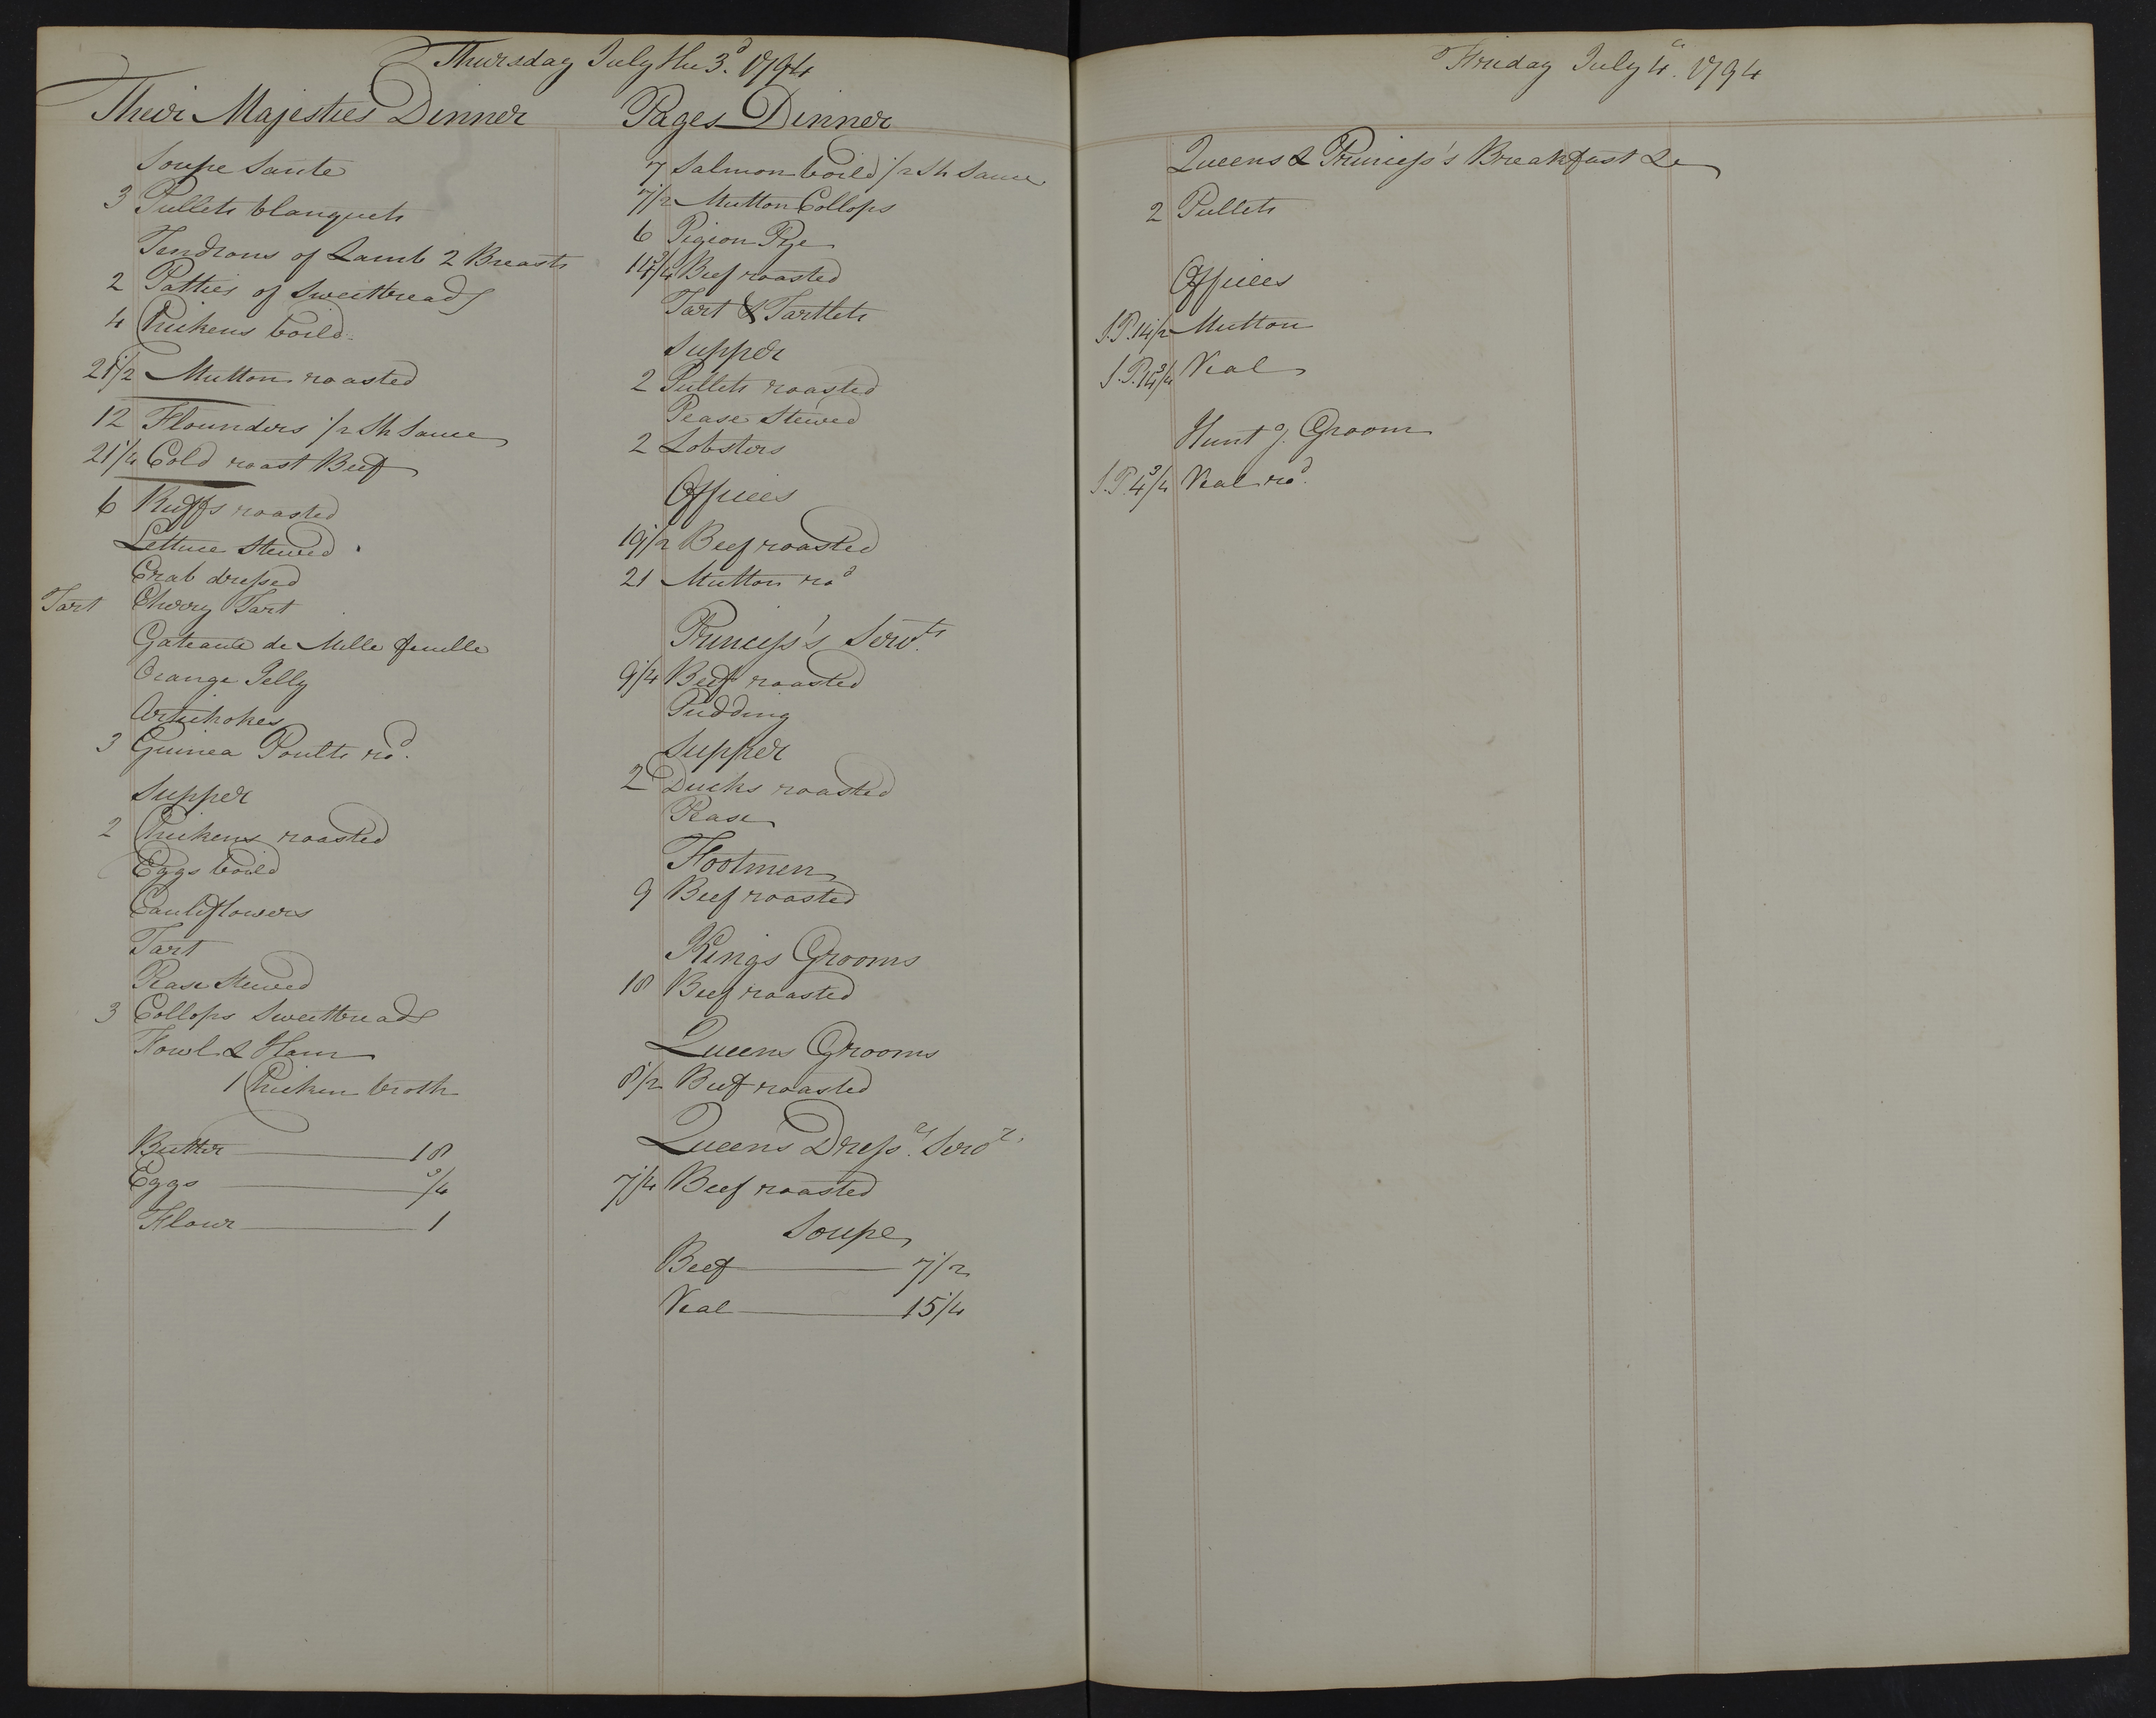 Thursday July the 3d. 1794
Their Majesties Dinner
Soupe Sante
3 Pullets blanquets
Tendrons of Lamb 2 Breasts
2 Patties of Sweetbreads
4 Chickens boild
21 1/2 Mutton roasted
12 Flounders 1/2 Sh Sauce
21 1/4 Cold roast Beef
6 Ruffs roasted
Lettuce Stewed
Crab dressed
Tart Cherry Tart
Gateaux de Mille feuille
Orange Jelly
Artichokes
3 Guinea Poults rod.
Supper
2 Chickens roasted
Eggs boild
Cauliflowers
Tart
Pease Stewed
3 Collops Sweetbreads
Fowl & Ham
1 Chicken broth
Butter 18
Eggs 3/4
Flour 1
Pages Dinner
7 Salmon boild 1/2 Sh Sauce
7 1/2 Mutton Collops
6 Pigeon Pye
14 3/4 Beef roasted
Tart & Tartlets
Supper
2 Pullets roasted
Pease Stewed
2 Lobsters
Offices
19 1/2 Beef roasted
21 Mutton rod
Princess's Servts.
9 1/4 Beef roasted
Pudding
Supper
2 Ducks roasted
Pease
Footmen
9 Beef roasted
Kings Grooms
18 Beef roasted
Queens Grooms
8 1/2 Beef roasted
Queen's Dress.rs Servt.
7 1/4 Beef roasted
Soupe
Beef 7 1/2
Veal 15 1/4
Friday July 4. 1794
Queens & Princess's Breakfast &c
2 Pullets
Offices
S.P. 14 1/2 Mutton
S.P. 14 3/4 Veal
Hunt g. Groom
S.P. 4 3/4 Veal rod.